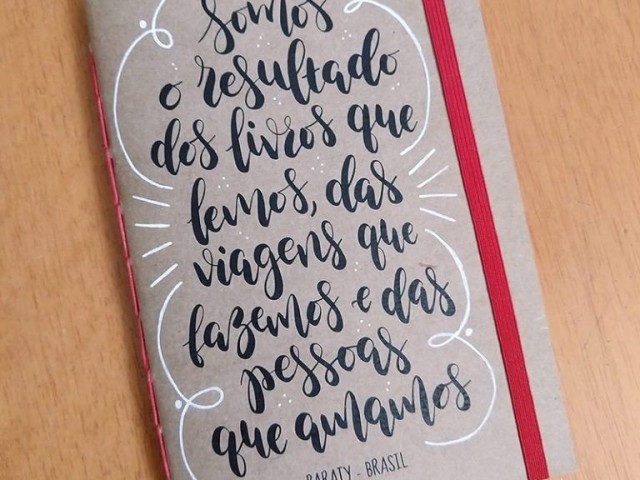 Somos
o resultado
dos livros que
lemos, das
viagens que
fazemos e das
pessoas
que amamos
PARATY - BRASIL